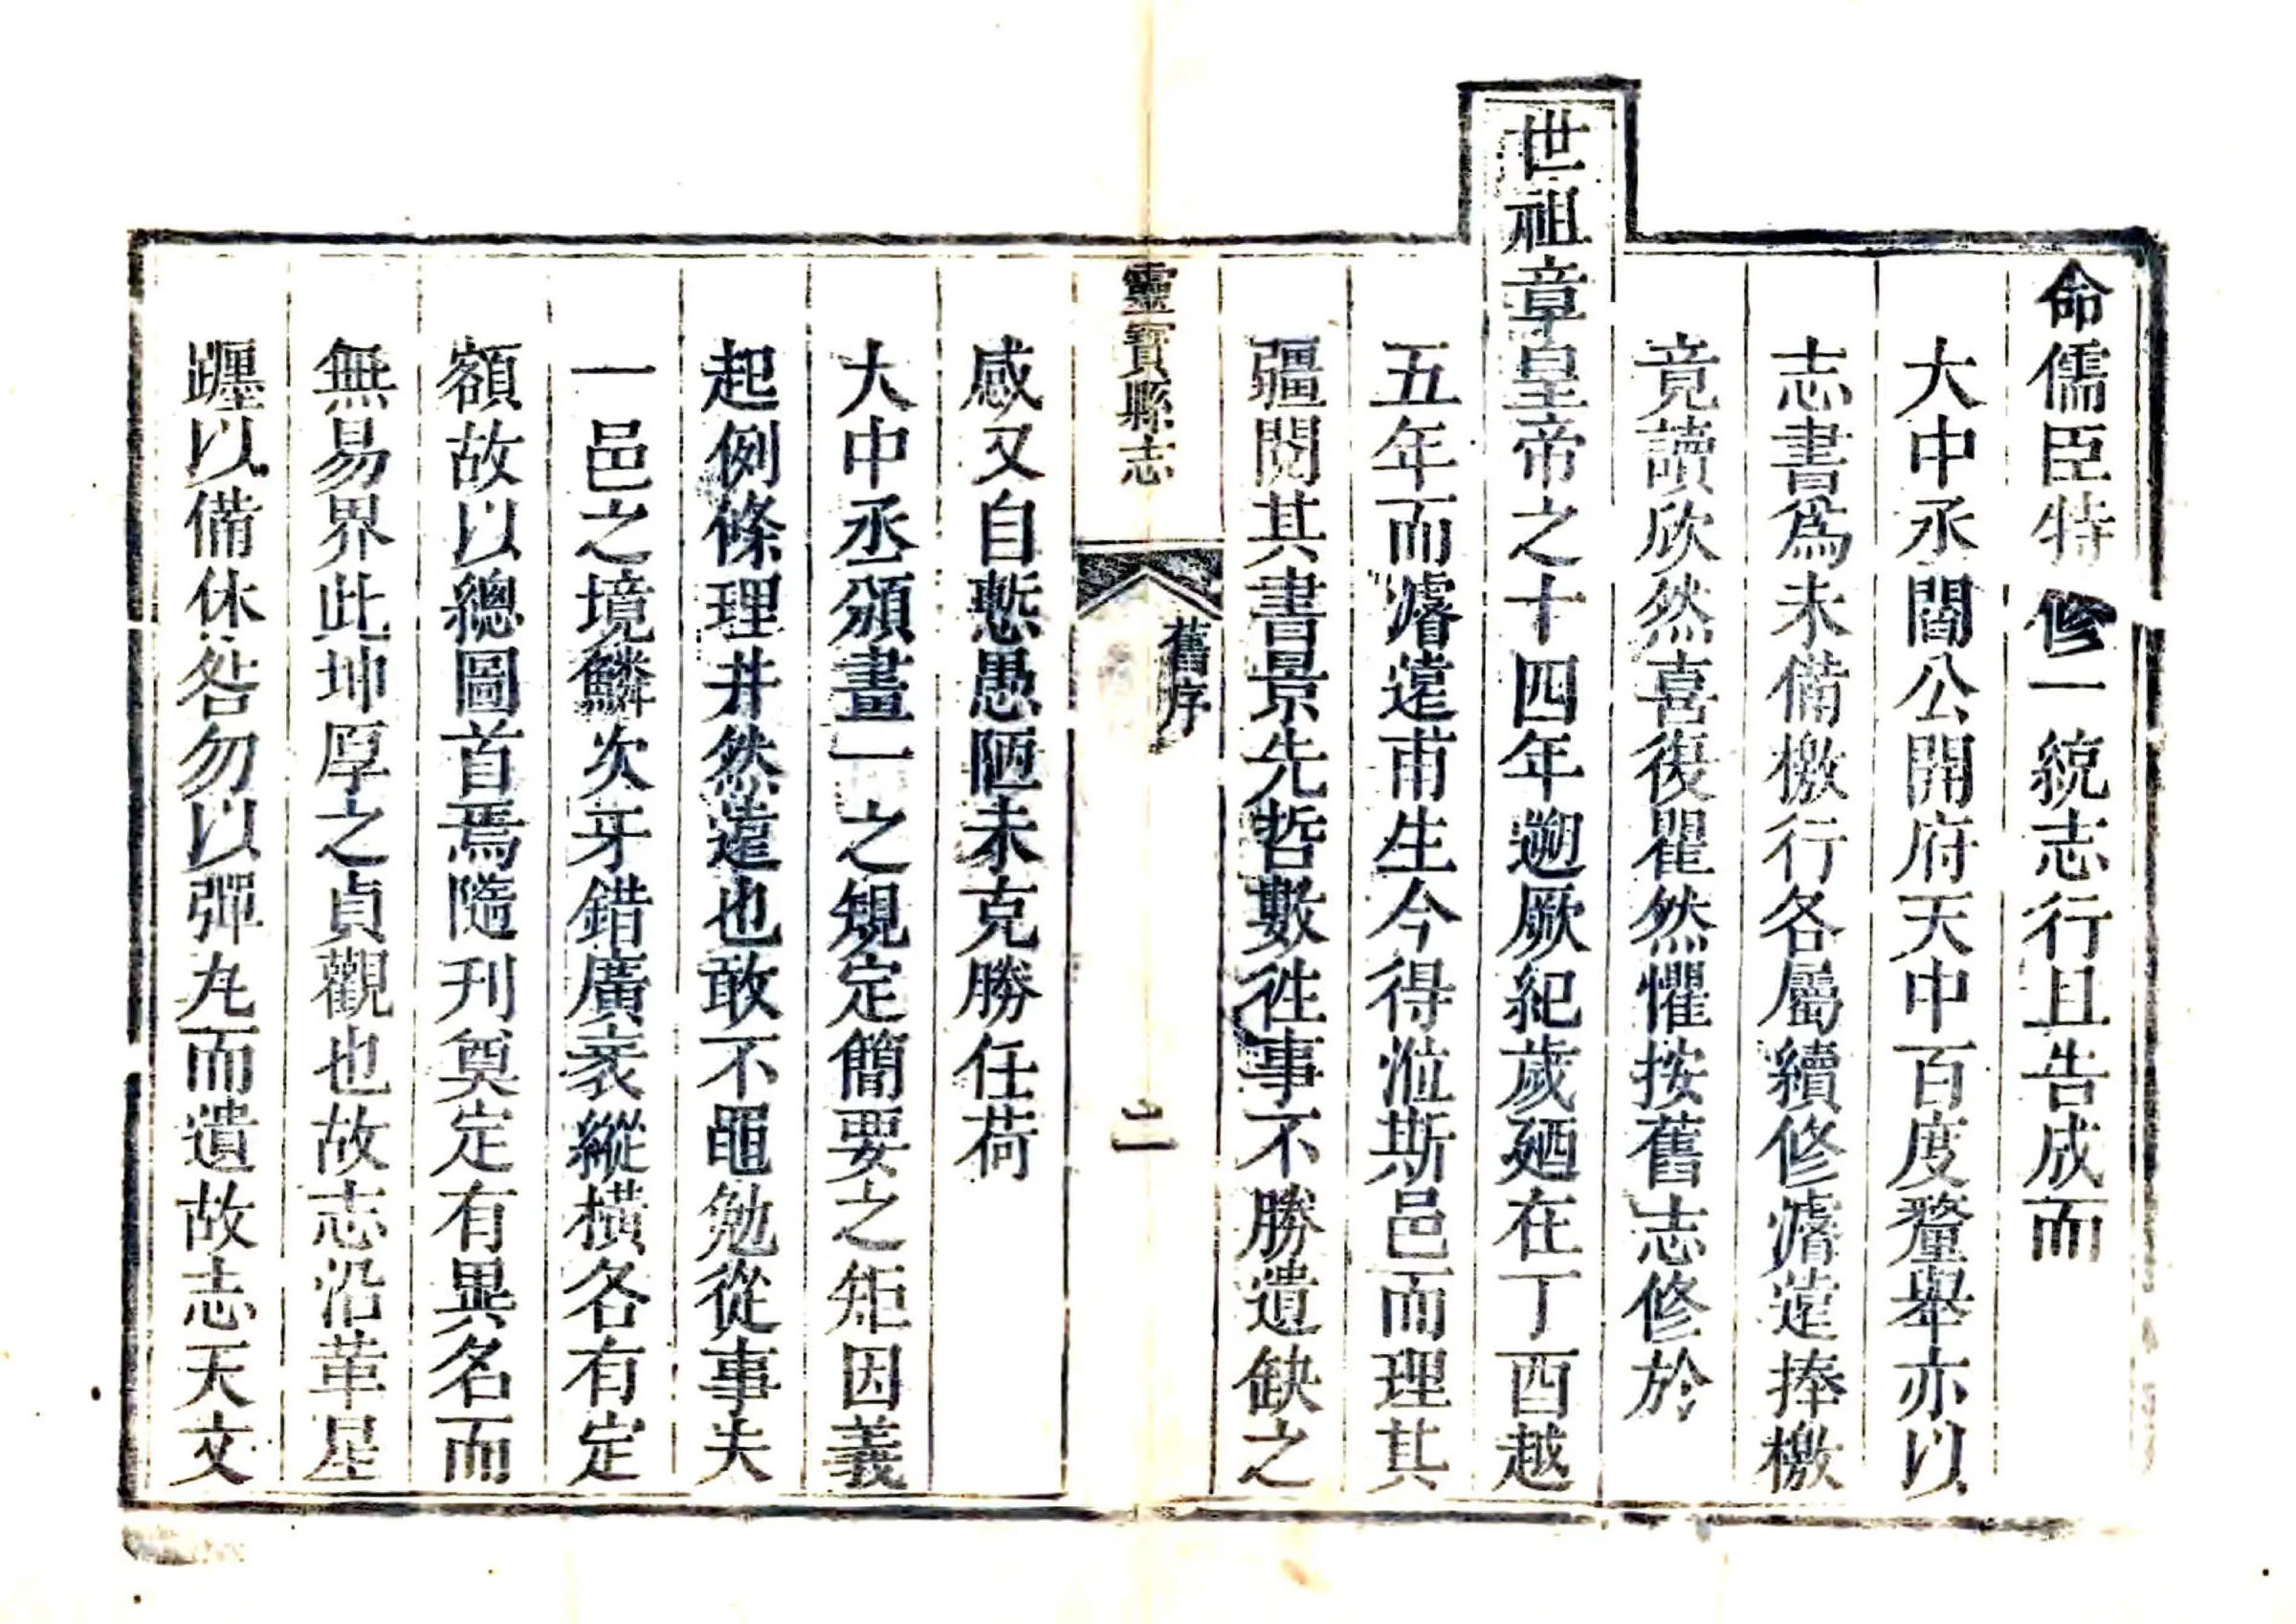 命儒臣特修一統志行且告成而
大中丞閻公開府天中百度釐舉亦以
志書爲未備檄行各屬續修濬薳捧檄
竟讀欣然喜復瞿然懼按舊志修於
世祖章皇帝之十四年遡厥紀歲廼在丁酉越
五年而濬薳甫生今得涖斯邑而理其
疆閱其書景先哲數徃事不勝遺缺之
靈寶縣志
舊序
二
感又自慙愚陋未克勝任荷
大中丞頒畫一之規定簡要之矩因義
起例條理井然薳也敢不黽勉從事夫
一邑之境鱗次牙錯廣袤縱橫各有定
額故以總圖首焉隨刊奠定有異名而
無易界此坤厚之貞觀也故志沿革星
躔以備休咎勿以彈丸而遺故志天文